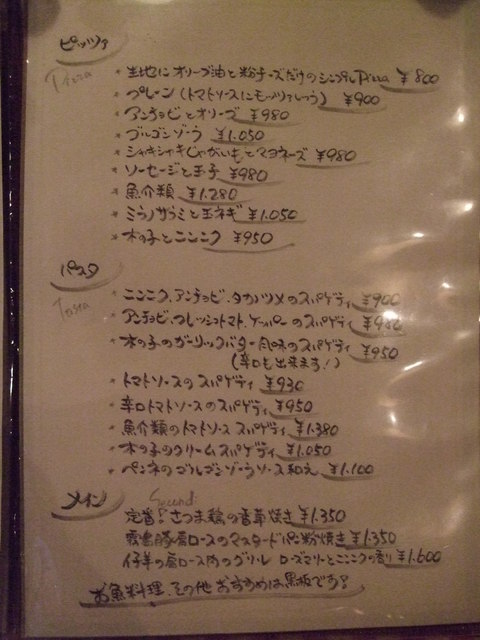 ピッツァ
Pizza
* 生地にオリーブ油と粉チーズだけのシンプルPizza ¥800
* プレーン(トマトソースにモッツァレッラ) ¥900
* アンチョビとオリーブ ¥980
* ゴルゴンゾーラ ¥1.050
* シャキシャキじゃがいもとマヨネーズ ¥980
* ソーセージと玉子 ¥980
* 魚介類 ¥1.280
* ミラノサラミと玉ネギ ¥1.050
* 木の子とニンニク ¥950
パスタ
Pasta
* ニンニク、アンチョビ、タカノツメのスパゲティ ¥900
* アンチョビ、フレッシュトマト、ケッパーのスパゲティ ¥980
* 木の子のガーリックバター風味のスパゲティ ¥950
(辛口も出来ます!)
* トマトソースのスパゲティ ¥930
* 辛口トマトソースのスパゲティ ¥950
* 魚介類のトマトソーススパゲティ ¥1.380
* 木の子のクリームスパゲティ ¥1.050
* ペンネのゴルゴンゾーラソース和え ¥1.100
メイン
Second
定番!さつま鶏の香草焼き ¥1.350
雲雀豚肩ロースのマスタードパン粉焼き ¥1.350
仔羊の肩ロース肉のグリル ローズマリーとニンニクの香り ¥1.600
お魚料理、その他おすすめは黒板です!